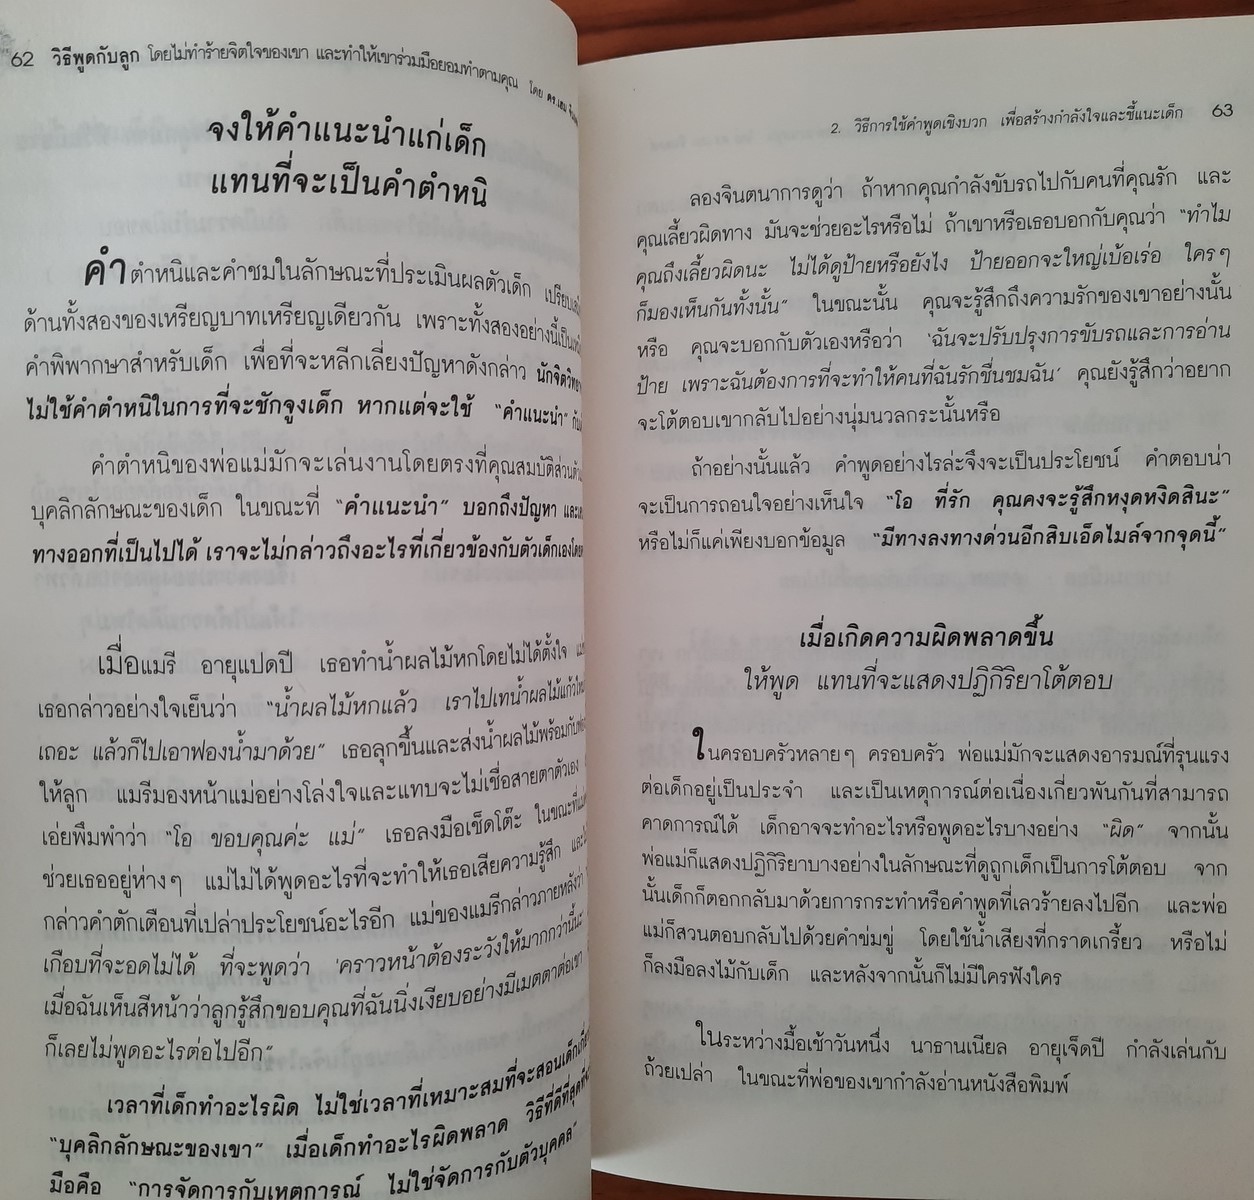 62 วิธีพูดกับลูก โดยไม่ทำร้ายจิตใจของเขา และทำให้เขาร่วมมือยอมทำตามคุณ โดย ดร.เฮม
จงให้คำแนะนำแก่เด็ก
แทนที่จะเป็นคำตำหนิ
คำตำหนิและคำชมในลักษณะที่ประเมินผลตัวเด็ก เปรียบ
ด้านทั้งสองของเหรียญบาทเหรียญเดียวกัน เพราะทั้งสองอย่างนี้เป็น
คำพิพากษาสำหรับเด็ก เพื่อที่จะหลีกเลี่ยงปัญหาดังกล่าว นักจิตวิทยา
ไม่ใช้คำตำหนิในการที่จะชักจูงเด็ก หากแต่จะใช้ “คำแนะนำ”
คำตำหนิของพ่อแม่มักจะเล่นงานโดยตรงที่คุณสมบัติส่วนตัว
บุคลิกลักษณะของเด็ก ในขณะที่ “คำแนะนำ” บอกถึงปัญหา และ
ทางออกที่เป็นไปได้ เราจะไม่กล่าวถึงอะไรที่เกี่ยวข้องกับตัวเด็กเอง
เมื่อแมรี อายุแปดปี เธอทำน้ำผลไม้หกโดยไม่ได้ตั้งใจ
เธอกล่าวอย่างใจเย็นว่า “น้ำผลไม้หกแล้ว เราไปเทน้ำผลไม้แก้วใหม่
เถอะ แล้วก็ไปเอาฟองน้ำมาด้วย” เธอลุกขึ้นและส่งน้ำผลไม้พร้อมกับ
ให้ลูก แมรีมองหน้าแม่อย่างโล่งใจและแทบจะไม่เชื่อสายตาตัวเอง
เอ่ยพึมพำว่า “โอ ขอบคุณค่ะ แม่” เธอลงมือเช็ดโต๊ะ ในขณะที่
ช่วยเธออยู่ห่างๆ แม่ไม่ได้พูดอะไรที่จะทำให้เธอเสียความรู้สึก และ
กล่าวคำตักเตือนที่เปล่าประโยชน์อะไรอีก แม่ของแมรีกล่าวภายหลังว่า
เกือบที่จะอดไม่ได้ ที่จะพูดว่า ‘คราวหน้าต้องระวังให้มากกว่านี้นะ
เมื่อฉันเห็นสีหน้าว่าลูกรู้สึกขอบคุณที่ฉันนิ่งเงียบอย่างมีเมตตาต่อเขา
ก็เลยไม่พูดอะไรต่อไปอีก”
เวลาที่เด็กทำอะไรผิด ไม่ใช่เวลาที่เหมาะสมที่จะสอนเด็ก
“บุคลิกลักษณะของเขา” เมื่อเด็กทำอะไรผิดพลาด วิธีที่ดีที่สุด
มือคือ “การจัดการกับเหตุการณ์ ไม่ใช่จัดการกับตัวบุคคล”
2. วิธีการใช้คำพูดเชิงบวก เพื่อสร้างกำลังใจและชี้แนะเด็ก 63
ลองจินตนาการดูว่า ถ้าหากคุณกำลังขับรถไปกับคนที่คุณรัก และ
คุณเลี้ยวผิดทาง มันจะช่วยอะไรหรือไม่ ถ้าเขาหรือเธอบอกกับคุณว่า “ทำไม
คุณถึงเลี้ยวผิดนะ ไม่ได้ดูป้ายหรือยังไง ป้ายออกจะใหญ่เบ้อเร่อ ใครๆ
ก็มองเห็นกันทั้งนั้น” ในขณะนั้น คุณจะรู้สึกถึงความรักของเขาอย่างนั้น
หรือ คุณจะบอกกับตัวเองหรือว่า ‘ฉันจะปรับปรุงการขับรถและการอ่าน
ป้าย เพราะฉันต้องการที่จะทำให้คนที่ฉันรักชื่นชมฉัน’ คุณยังรู้สึกว่าอยาก
จะโต้ตอบเขากลับไปอย่างนุ่มนวลกระนั้นหรือ
ถ้าอย่างนั้นแล้ว คำพูดอย่างไรล่ะจึงจะเป็นประโยชน์ คำตอบน่า
จะเป็นการถอนใจอย่างเห็นใจ “โอ ที่รัก คุณคงจะรู้สึกหงุดหงิดสินะ”
หรือไม่ก็แค่เพียงบอกข้อมูล “มีทางลงทางด่วนอีกสิบเอ็ดไมล์จากจุดนี้”
เมื่อเกิดความผิดพลาดขึ้น
ให้พูด แทนที่จะแสดงปฏิกิริยาโต้ตอบ
ในครอบครัวหลายๆ ครอบครัว พ่อแม่มักจะแสดงอารมณ์ที่รุนแรง
ต่อเด็กอยู่เป็นประจำ และเป็นเหตุการณ์ต่อเนื่องเกี่ยวพันกันที่สามารถ
คาดการณ์ได้ เด็กอาจจะทำอะไรหรือพูดอะไรบางอย่าง “ผิด” จากนั้น
พ่อแม่ก็แสดงปฏิกิริยาบางอย่างในลักษณะที่ดูถูกเด็กเป็นการโต้ตอบ จาก
นั้นเด็กก็ตอกกลับมาด้วยการกระทำหรือคำพูดที่เลวร้ายลงไปอีก และพ่อ
แม่ก็สวนตอบกลับไปด้วยคำข่มขู่ โดยใช้น้ำเสียงที่กราดเกรี้ยว หรือไม่
ก็ลงมือลงไม้กับเด็ก และหลังจากนั้นก็ไม่มีใครฟังใคร
ในระหว่างมื้อเช้าวันหนึ่ง นาธานเนียล อายุเจ็ดปี กำลังเล่นกับ
ถ้วยเปล่า ในขณะที่พ่อของเขากำลังอ่านหนังสือพิมพ์